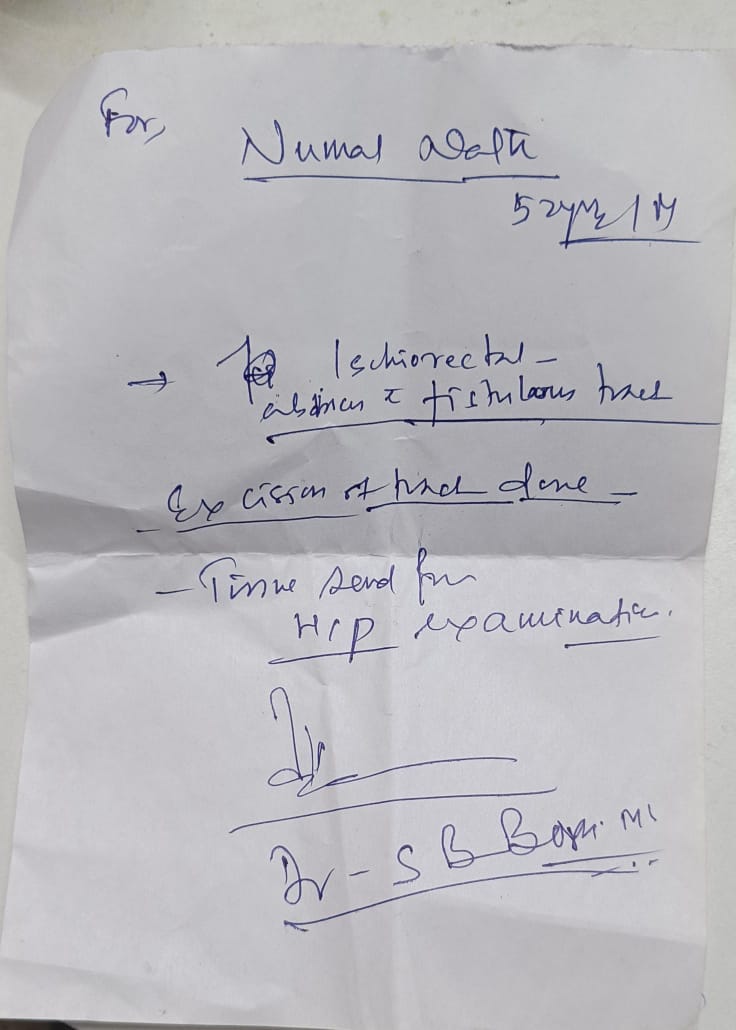 For,
Numal
52yrs/M
→ Ischiorectal -
abscess c̄ fistulous tract
- Excission of tract done -
- Tissue send for
HCP examination.
Dr - S B